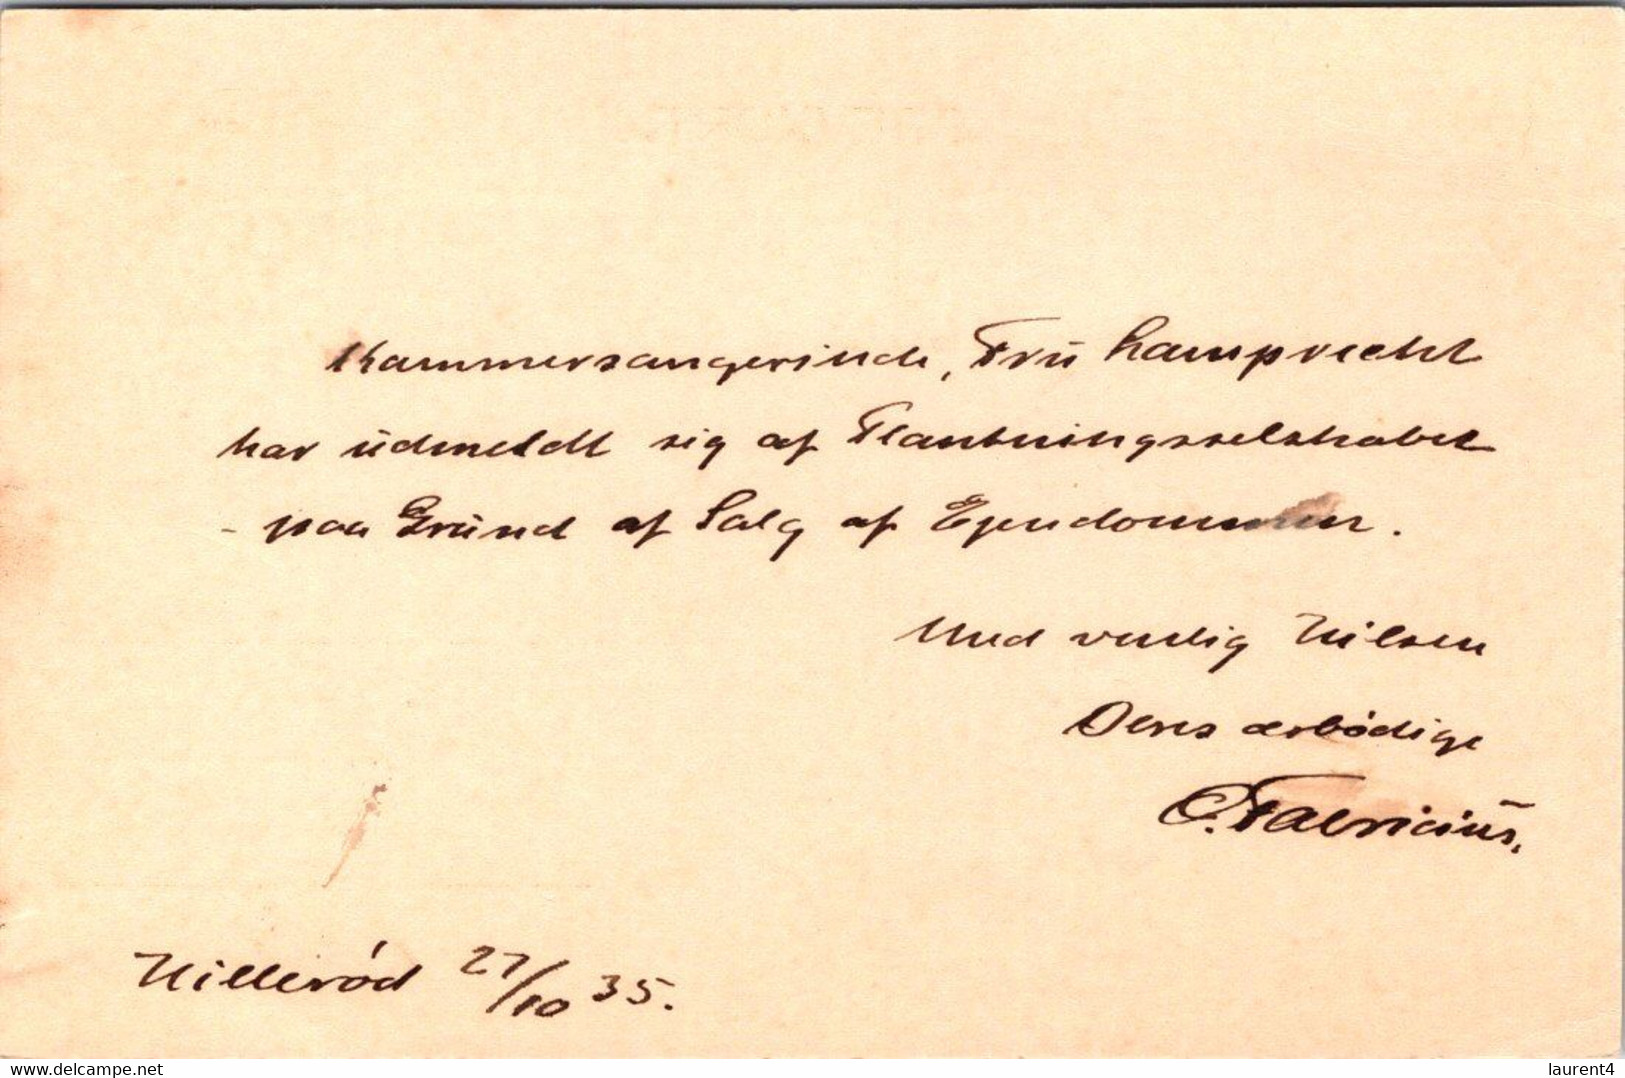 Kammersangerinde, Frü Lamprecht
har üdmeldt sig af Plantningsselskabet
- paa Gründ af Salg af Ejendommen.
Med venlig Hilsen
Deres ærbødige
C. Fabricius.
Hillerød 27/10 35.
delcampe.net
laurent4